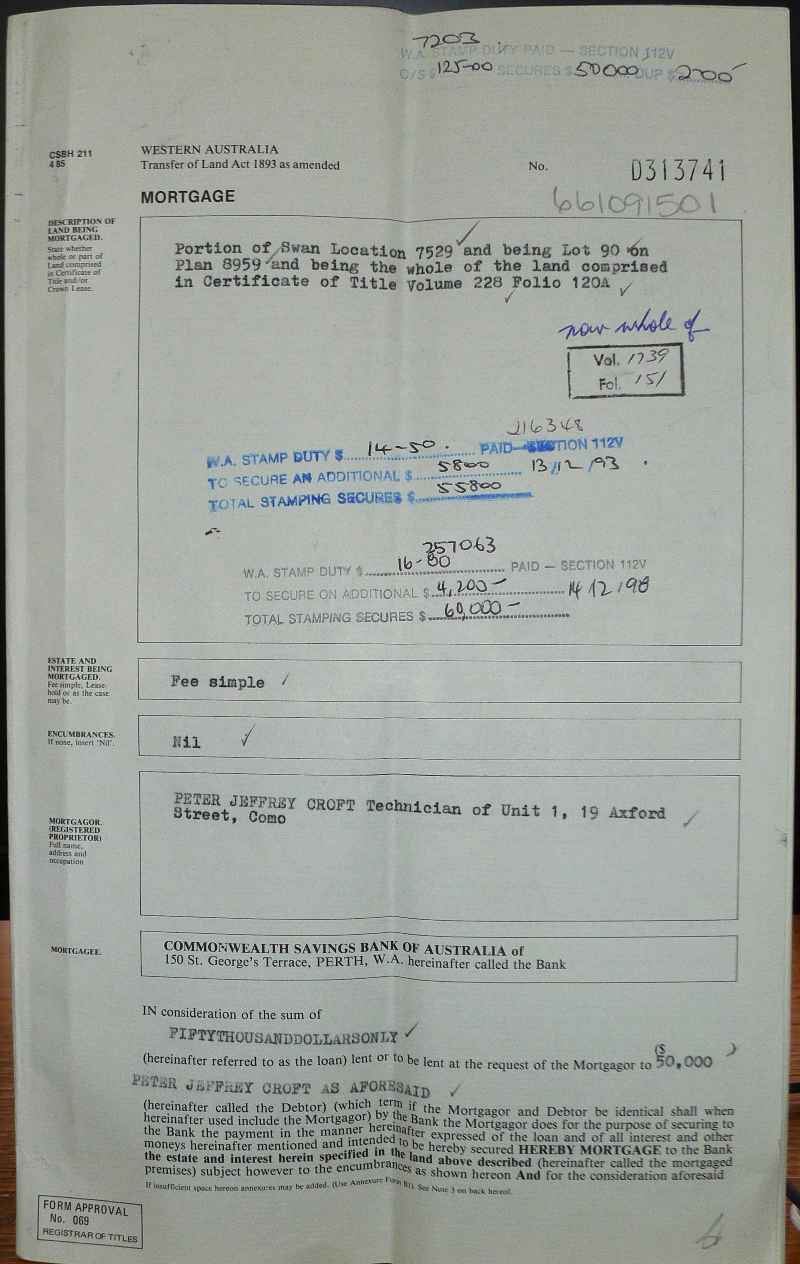 7203
W.A. STAMP DUTY PAID — SECTION 112V
O/S $ 125-00 SECURES $ 50000 DUP $ 2-00
CSBH 211
4 85
WESTERN AUSTRALIA
Transfer of Land Act 1893 as amended
No. D313741
MORTGAGE
661091501
DESCRIPTION OF
LAND BEING
MORTGAGED.
State whether
whole or part of
Land comprised
in Certificate of
Title and/or
Crown Lease.
Portion of Swan Location 7529 and being Lot 90 on
Plan 8959 and being the whole of the land comprised
in Certificate of Title Volume 228 Folio 120A
now whole of
Vol. 1739
Fol. 151
J16348
W.A. STAMP DUTY $ 14-50. PAID—SECTION 112V
TO SECURE AN ADDITIONAL $ 5800 13/12/93
TOTAL STAMPING SECURES $ 55800
257063
W.A. STAMP DUTY $ 16-80 PAID — SECTION 112V
TO SECURE ON ADDITIONAL $ 4,200— 14/12/98
TOTAL STAMPING SECURES $ 60,000—
ESTATE AND
INTEREST BEING
MORTGAGED.
Fee simple, Lease-
hold or as the case
may be.
Fee simple
ENCUMBRANCES.
If none, insert 'Nil'.
Nil
MORTGAGOR.
(REGISTERED
PROPRIETOR)
Full name,
address and
occupation
PETER JEFFREY CROFT Technician of Unit 1, 19 Axford
Street, Como
MORTGAGEE.
COMMONWEALTH SAVINGS BANK OF AUSTRALIA of
150 St. George's Terrace, PERTH, W.A. hereinafter called the Bank
IN consideration of the sum of
FIFTYTHOUSANDDOLLARSONLY
($ 50,000 )
(hereinafter referred to as the loan) lent or to be lent at the request of the Mortgagor to
PETER JEFFREY CROFT AS AFORESAID
(hereinafter called the Debtor) (which term if the Mortgagor and Debtor be identical shall when
hereinafter used include the Mortgagor) by the Bank the Mortgagor does for the purpose of securing to
the Bank the payment in the manner hereinafter expressed of the loan and of all interest and other
moneys hereinafter mentioned and intended to be hereby secured HEREBY MORTGAGE to the Bank
the estate and interest herein specified in the land above described (hereinafter called the mortgaged
premises) subject however to the encumbrances as shown hereon And for the consideration aforesaid
If insufficient space hereon annexures may be added. (Use Annexure Form B1). See Note 3 on back hereof.
FORM APPROVAL
No. 069
REGISTRAR OF TITLES